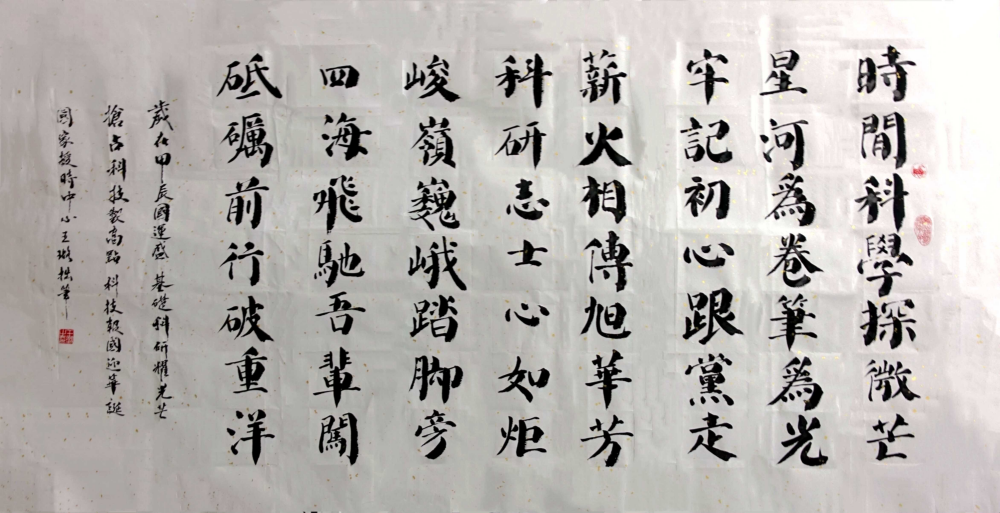 時間科學探微芒
星河為卷筆為光
牢記初心跟黨走
薪火相傳旭華芳
科研志士心如炬
峻嶺巍峨踏腳旁
四海飛馳吾輩闖
砥礪前行破重洋
歲在甲辰國運盛 基础科研耀光芒
搶占科技製高點 科技報國迎華誕
國家授時中心王 拙筆